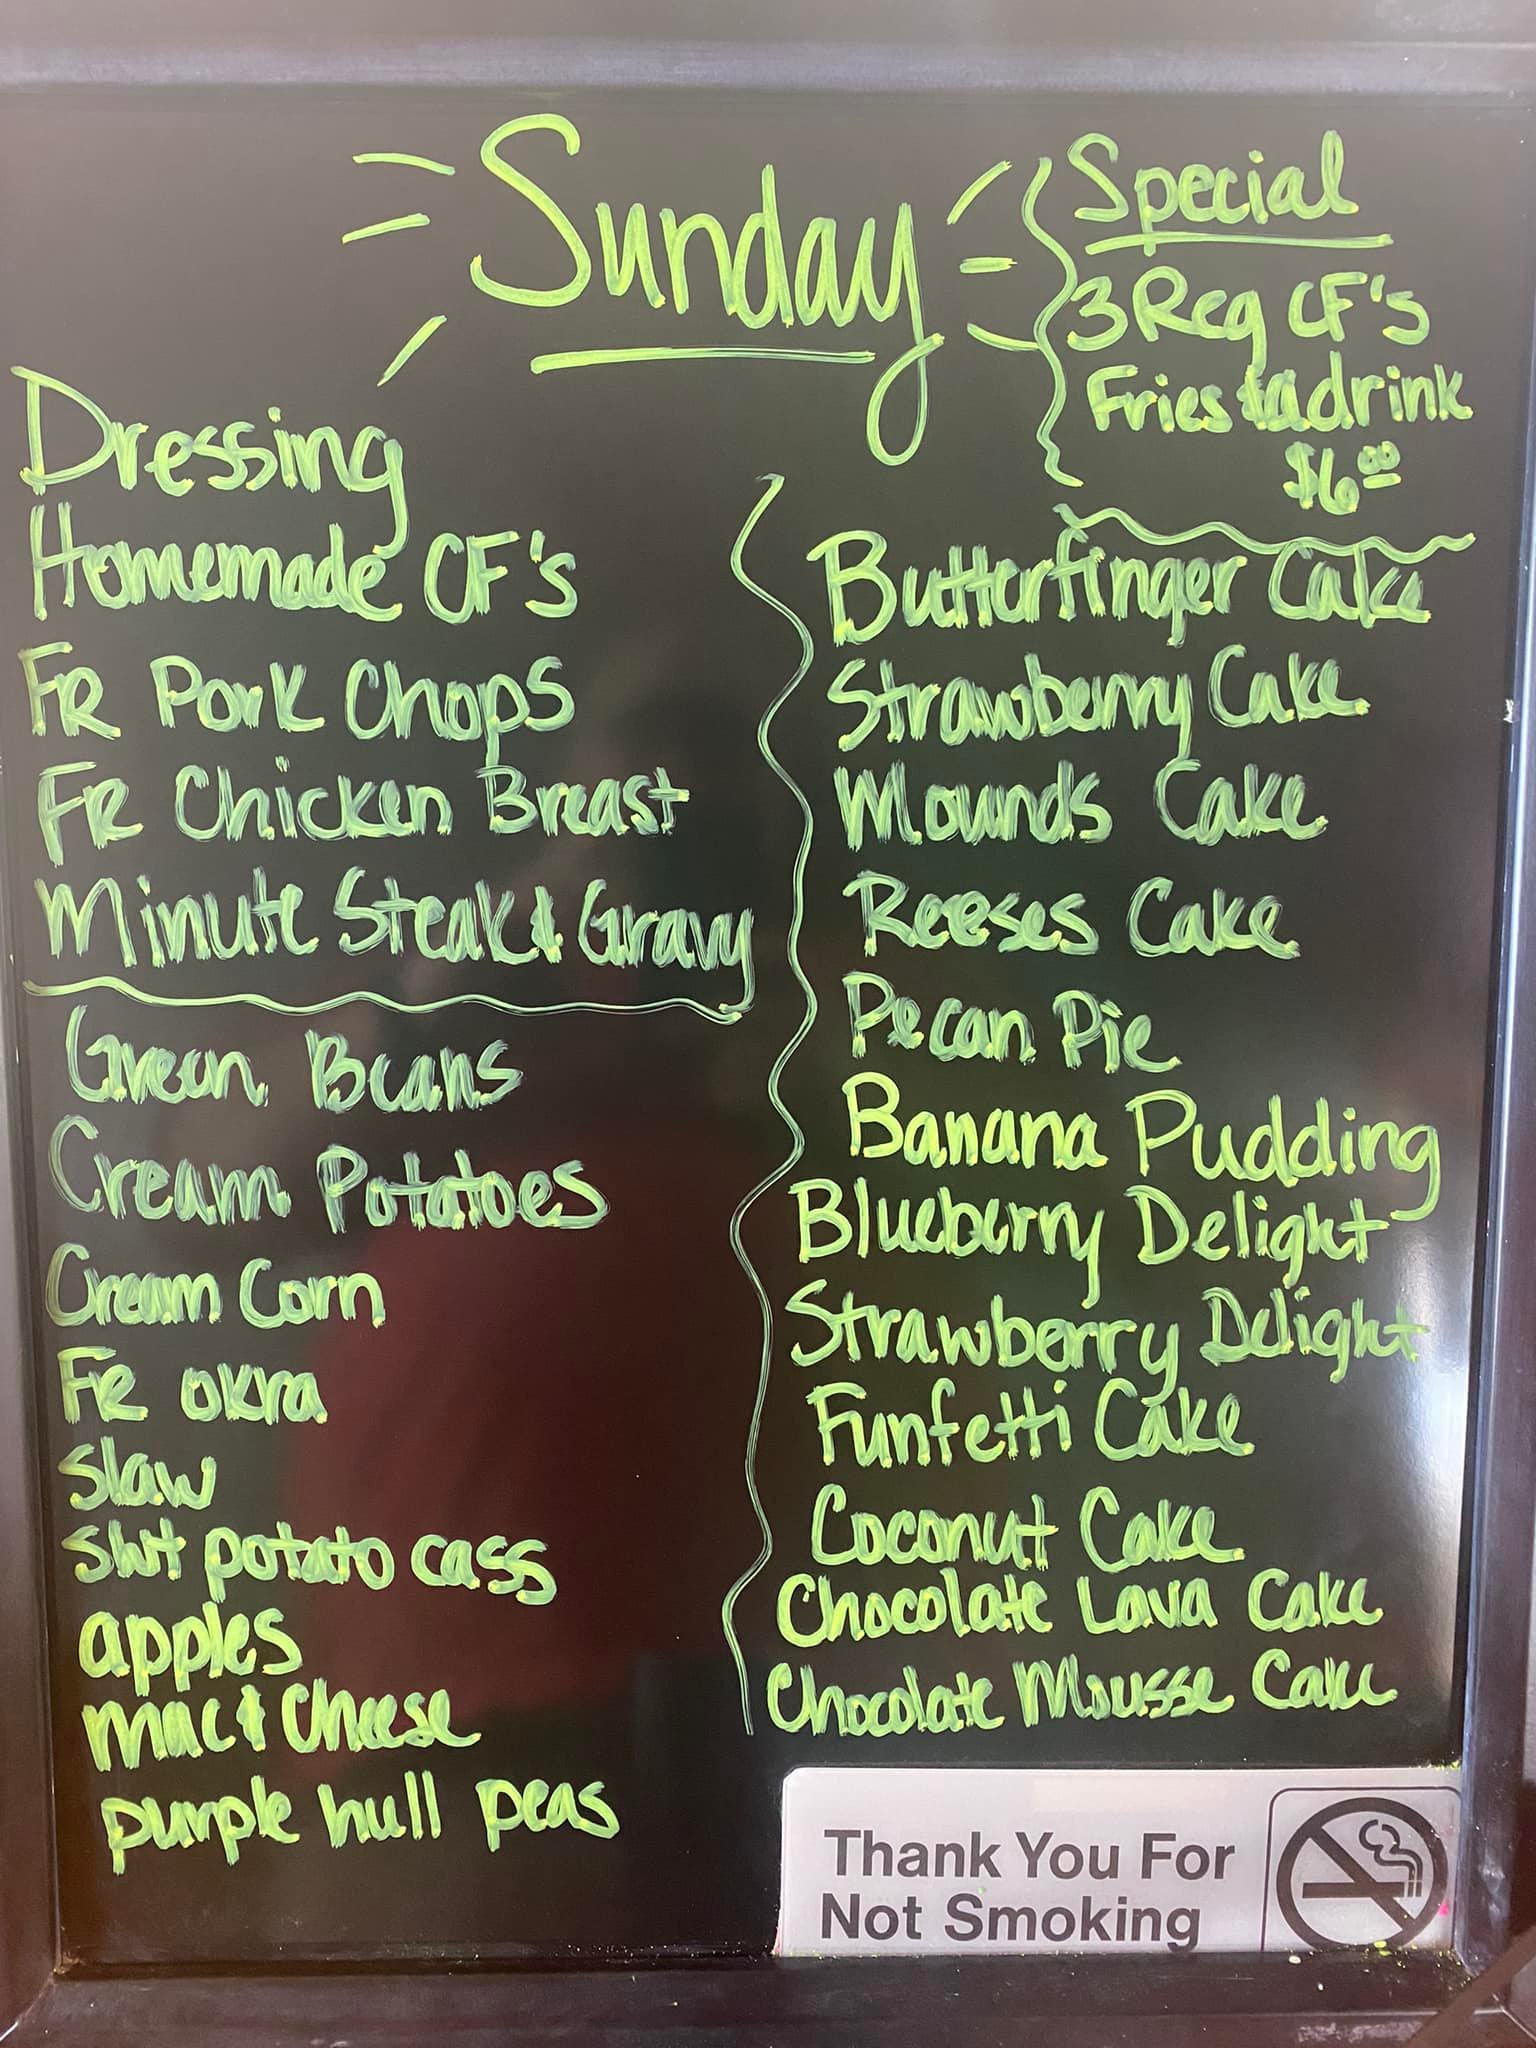 Sunday
Special
3 Reg CF's
Fries & a drink
$6.00
Dressing
Homemade CF's
FR Pork Chops
FR Chicken Breast
Minute Steak & Gravy
Green Beans
Cream Potatoes
Cream Corn
FR okra
Slaw
Swt potato cass
apples
mac & Cheese
purple hull peas
Butterfinger Cake
Strawberry Cake
Mounds Cake
Reeses Cake
Pecan Pie
Banana Pudding
Blueberry Delight
Strawberry Delight
Funfetti Cake
Coconut Cake
Chocolate Lava Cake
Chocolate Mousse Cake
Thank You For
Not Smoking